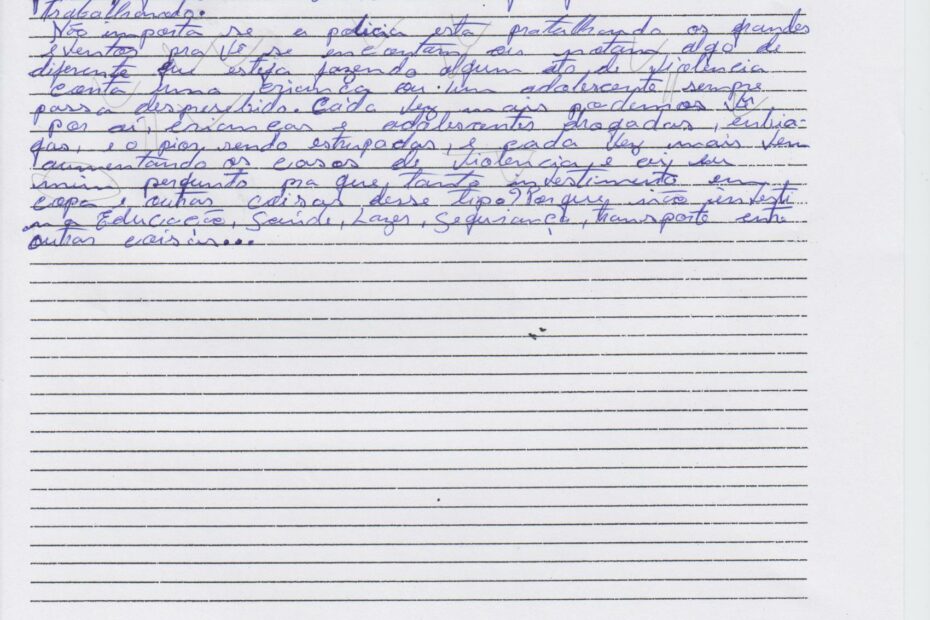 trabalhando.
Não importa se a policia esta patralhando os grandes
eventos pra vê se encontam ou notam algo de
diferente que esteja fazendo algum ato de violência
conta uma criança ou um adolescente sempre
passa despresebido. Cada vez mais podemos vê
por aí, crianças e adolescentes drogadas, enbria-
gas, e o pior sendo estrupadas, e cada vez mais vem
aumentando os casos de violencia, e ai eu
mim pergunto pra que tanto investimento em
copa e outras coisas desse tipo? Porque não investi
na Educação, Saúde, Lazer, Segurança, transporte entre
outras coisas...